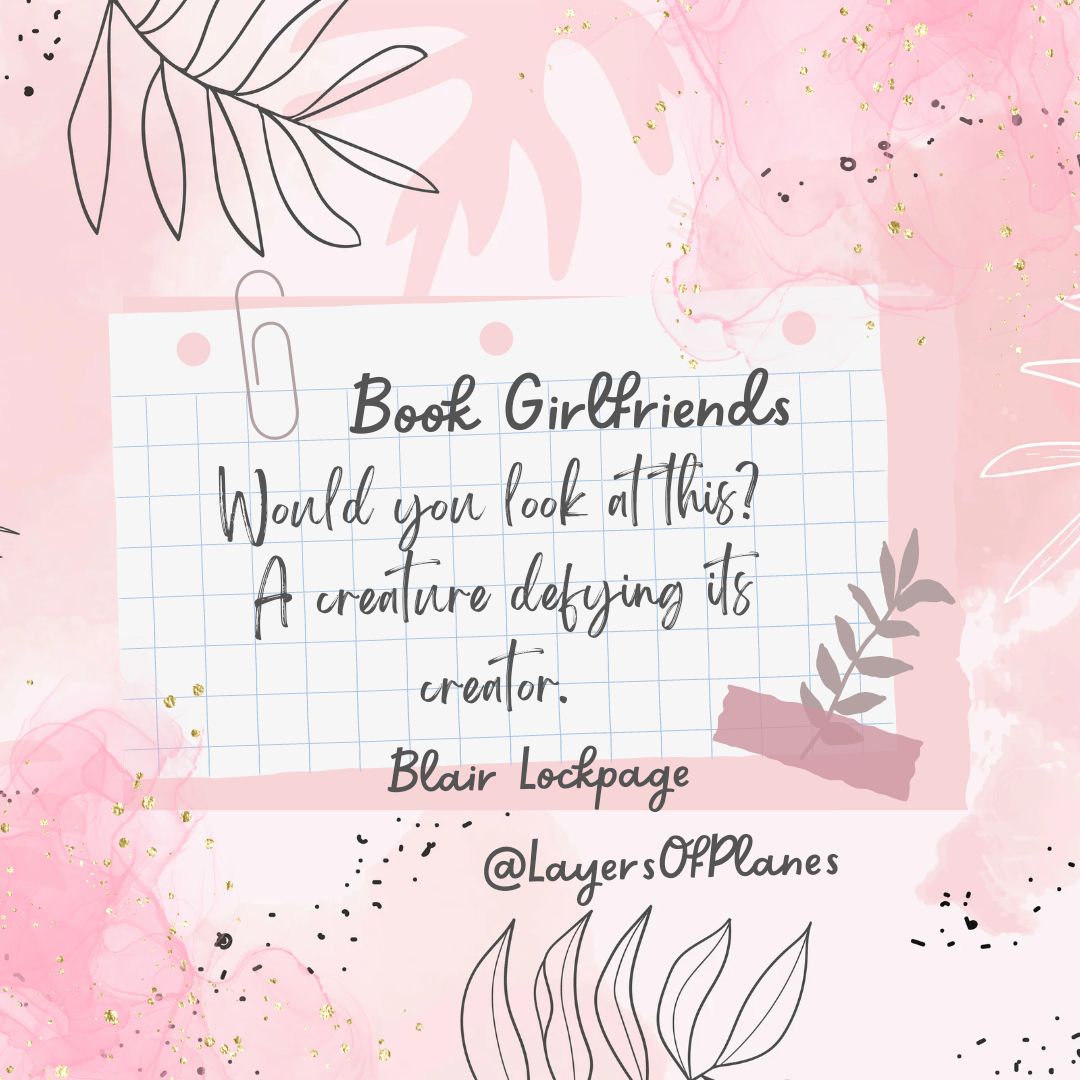 Book Girlfriends
Would you look at this?
A creature defying its
creator.
Blair Lockpage
@LayersOfPlanes